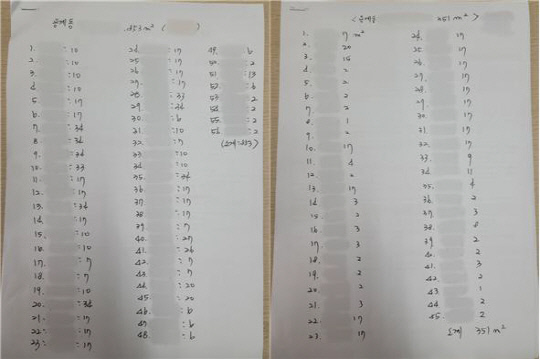 853 m² (
1. :10
2. :10
3. :10
4. :10
5. :17
6. :17
7. :34
8. :34
9. :34
10. :33
11. :17
12. :17
13. :34
14. :17
15. :10
16. :10
17. :7
18. :7
19. :34
20. :34
21. :17
22. :17
23. :17
24. :17
25. :17
26. :17
27. :17
28. :33
29. :34
30. :6
31. :10
32. :7
33. :10
34. :10
35. :34
36. :17
37. :17
38. :17
39. :7
40. :27
41. :26
42. :7
43. :7
44. :20
45. :20
46. :6
47. :6
48. :6
49. :6
50. :2
51. :13
52. :6
53. :2
54. :2
55. :2
56. :2
351 m² >
1. 7 m²
2. 20
3. 15
4. 2
5. 2
6. 2
7. 2
8. 1
9. 2
10. 17
11. 4
12. 2
13. 17
14. 3
15. 2
16. 3
17. 3
18. 2
19. 2
20. 2
21. 3
22. 17
23. 17
24. 17
25. 17
26. 17
27. 17
28. 17
29. 17
30. 17
31. 17
32. 17
33. 9
34. 11
35. 4
36. 2
37. 3
38. 8
39. 2
40. 2
41. 3
42. 2
43. 1
44. 2
45. 2
소계 351 m²